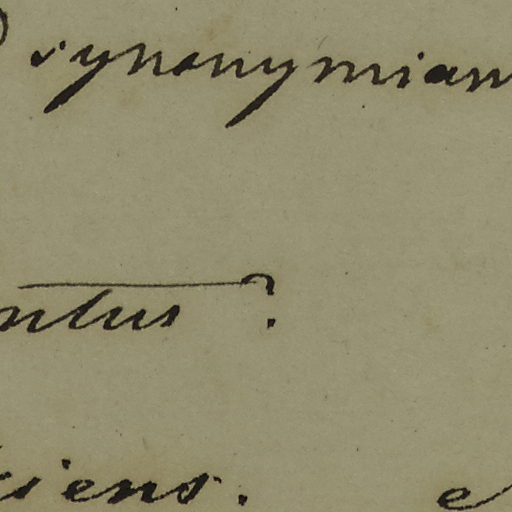 synonymian
ntus ?
iens.